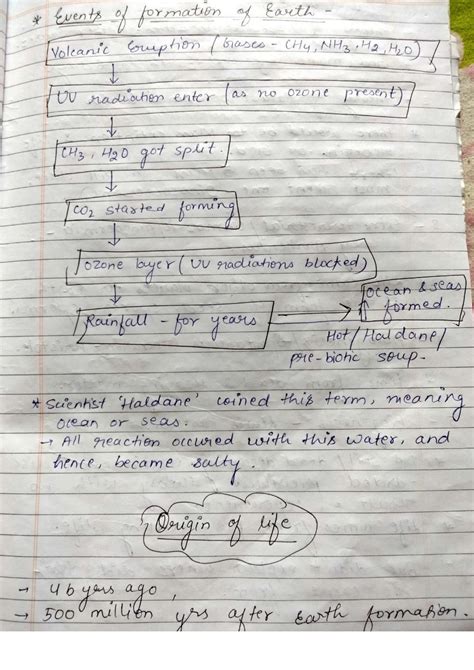 * Events of formation of Earth -
Volcanic Eruption (Gases - CH4, NH3, H2, H2O)
UV radiation enter (as no ozone present)
CH3, H2O got split.
CO2 started forming
Ozone layer (UV radiations blocked)
Rainfall - for years
Ocean & seas
formed.
Hot/Haldane/
pre-biotic soup.
* Scientist 'Haldane' coined this term, meaning
ocean or seas.
→ All reaction occured with this water, and
hence, became salty.
Origin of life
→ 4 b yrs ago,
→ 500 million yrs after Earth formation.